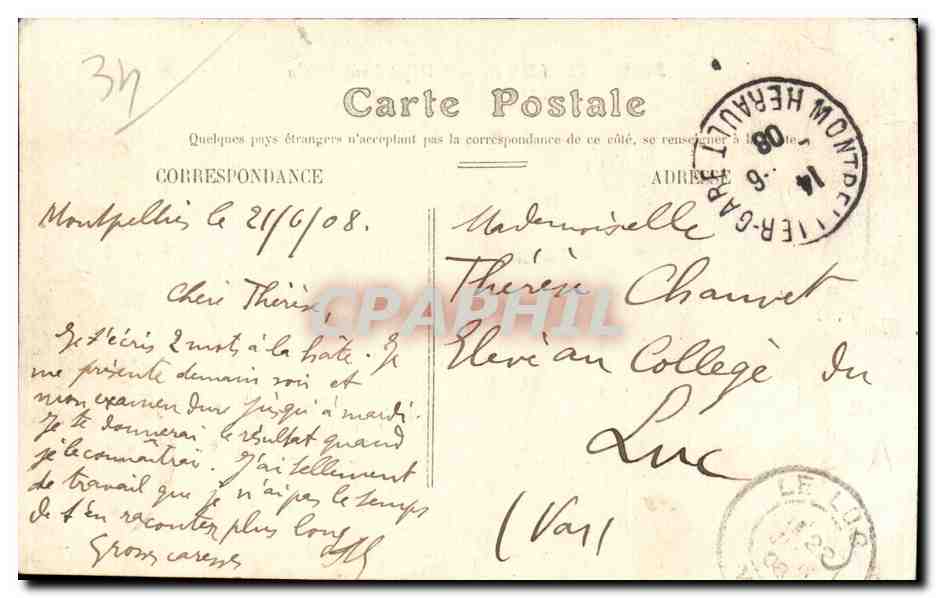 34
Carte Postale
Quelques pays étrangers n'acceptant pas la correspondance de ce côté, se renseigner à la Poste
CORRESPONDANCE
Montpellier le 21/6/08.
Chère Thérèse,
Je t'écris 2 mots à la hâte. Je
me présente demain soir et
mon examen dure jusqu'à mardi.
Je te donnerai le résultat quand
je le connaîtrai. J'ai tellement
de travail que je n'ai pas le temps
de t'en raconter plus long
Grosses caresses
ADRESSE
Mademoiselle
Thérèse Chauvet
Elevé au Collège du
Luc
(Var)
MONTPELLIER-GARE HERAULT
14
6
08
LE LUC
22
08
CPAPHIL